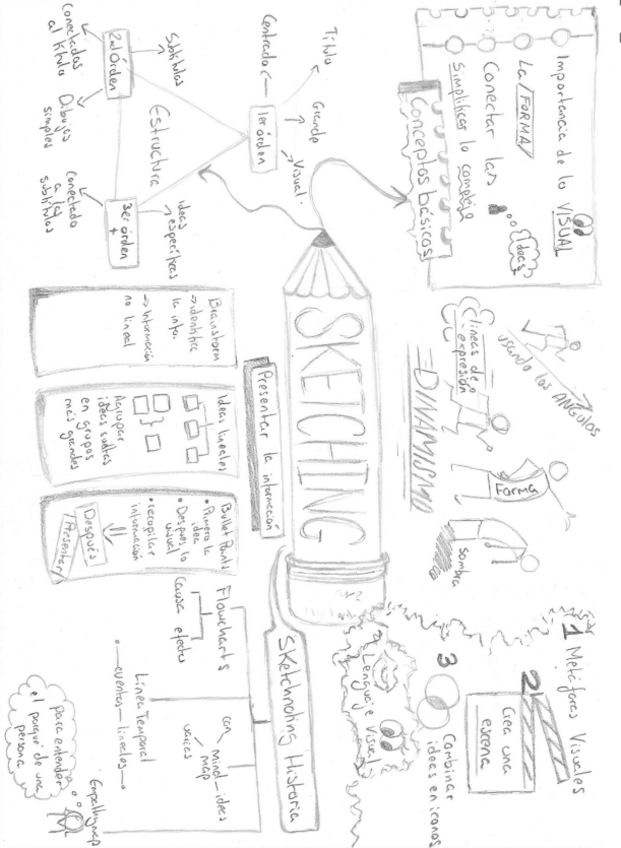 Importancia de lo VISUAL
La FORMA
Conectar las
Ideas
Simplificar lo complejo
Conceptos básicos
Título
Grande
Visual.
Centrado
1er órden
Estructura
2do órden
Subtítulos
Conectados
al título
Dibujos
simples
3er órden
+
Ideas
específicas
Conectado
a los
subtítulos
SKETCHING
usando los ÁNGULOS
Líneas de
expresión
DINAMISMO
Forma
sombra
1 Metáforas Visuales
2
Crea una
escena
3
Combinar
ideas en iconos
Lenguaje Visual
Presentar la información
Brainstorm
→ identifica
la info.
→ Información
no lineal
Ideas lineales
Agrupar
ideas sueltas
en grupos
más grandes
Bullet Points
• Primero la
idea
• Después lo
visual
• recopilar
información
Después
Presentar
Sketchnoting Historia
Flowcharts
Causa efecto
Línea Temporal
eventos lineales
Mind map
con ideas
varias
Empathymap
para entender
el porqué de una
persona